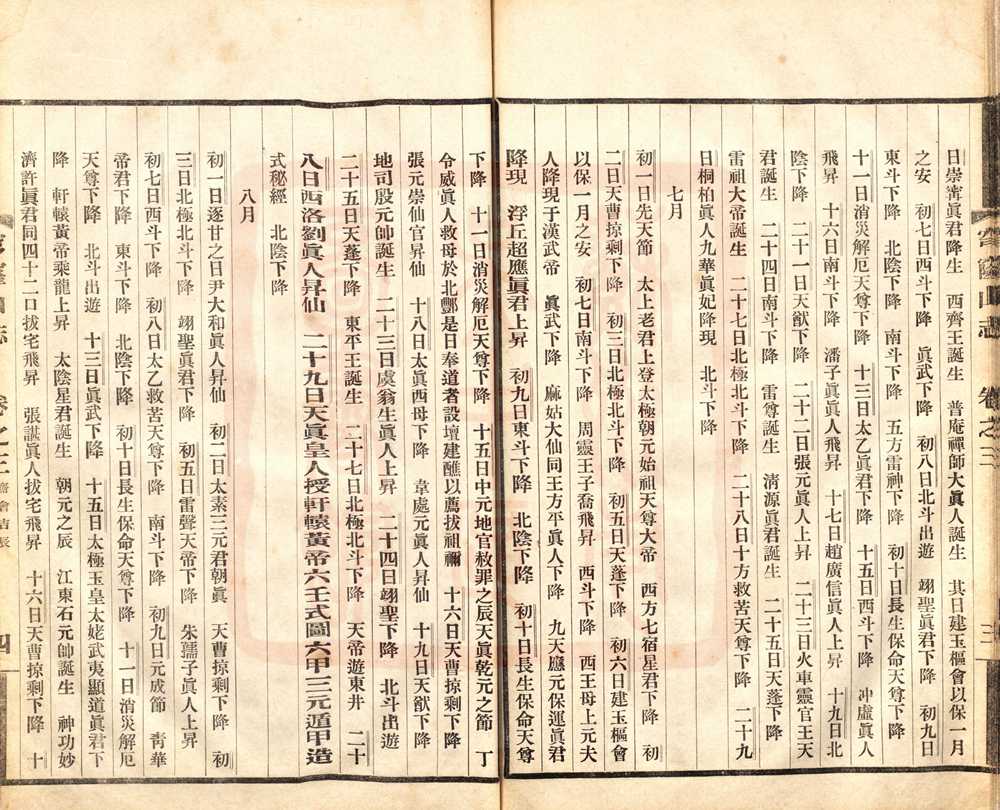 日崇寗眞君降生　西齊王誕生　普庵禪師大眞人誕生　其日建玉樞會以保一月
之安　初七日西斗下降　眞武下降　初八日北斗出遊　翊聖眞君下降　初九日
東斗下降　北陰下降　南斗下降　五方雷神下降　初十日長生保命天尊下降
十一日消災解厄天尊下降　十三日太乙眞君下降　十五日西斗下降　冲虛眞人
飛昇　十六日南斗下降　潘子眞眞人飛昇　十七日趙廣信眞人上昇　十九日北
陰下降　二十一日天猷下降　二十二日張元眞人上昇　二十三日火車靈官王天
君誕生　二十四日南斗下降　雷尊誕生　清源眞君誕生　二十五日天蓬下降
雷祖大帝誕生　二十七日北極北斗下降　二十八日十方救苦天尊下降　二十九
日桐柏眞人九華眞妃降現　北斗下降
七月
初一日先天節　太上老君上登太極朝元始祖天尊大帝　西方七宿星君下降　初
二日天曹掠剩下降　初三日北極北斗下降　初五日天蓬下降　初六日建玉樞會
以保一月之安　初七日南斗下降　周靈王子喬飛昇　西斗下降　西王母上元夫
人降現于漢武帝　眞武下降　麻姑大仙同王方平眞人下降　九天應元保運眞君
降現　浮丘超應眞君上昇　初九日東斗下降　北陰下降　初十日長生保命天尊
下降　十一日消災解厄天尊下降　十五日中元地官赦罪之辰天眞乾元之節　丁
令威眞人救母於北酆是日奉道者設壇建醮以薦拔祖禰　十六日天曹掠剩下降
張元崇仙官昇仙　十八日太眞西母下降　韋處元眞人昇仙　十九日天猷下降
地司殷元帥誕生　二十三日虞翁生眞人上昇　二十四日翊聖下降　北斗出遊
二十五日天蓬下降　東平王誕生　二十七日北極北斗下降　天帝遊東井　二十
八日西洛劉眞人昇仙　二十九日天眞皇人授軒轅黃帝六壬式圖六甲三元遁甲造
式秘經　北陰下降
八月
初一日逐甘之日尹大和眞人昇仙　初二日太素三元君朝眞　天曹掠剩下降　初
三日北極北斗下降　翊聖眞君下降　初五日雷聲天帝下降　朱孺子眞人上昇
初七日西斗下降　初八日太乙救苦天尊下降　南斗下降　初九日元成節　靑華
帝君下降　東斗下降　北陰下降　初十日長生保命天尊下降　十一日消災解厄
天尊下降　北斗出遊　十三日眞武下降　十五日太極玉皇太姥武夷顯道眞君下
降　軒轅黃帝乘龍上昇　太陰星君誕生　朝元之辰　江東石元帥誕生　神功妙
濟許眞君同四十二口拔宅飛昇　張諶眞人拔宅飛昇　十六日天曹掠剩下降　十
志　卷之三
三
志　卷之三
四